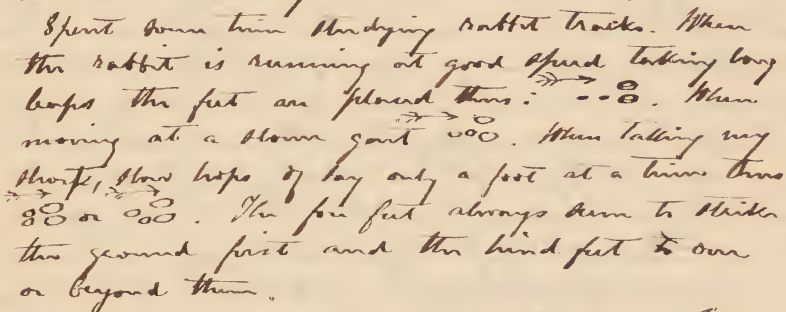 Spent some time studying rabbit tracks. When
the rabbit is running at good speed taking long
leaps the feet are placed thus: . When
moving at a slower gait . When taking very
short, slow hops of say only a foot at a time thus
or . The fore feet always seem to strike
the ground first and the hind feet to over
or beyond them.